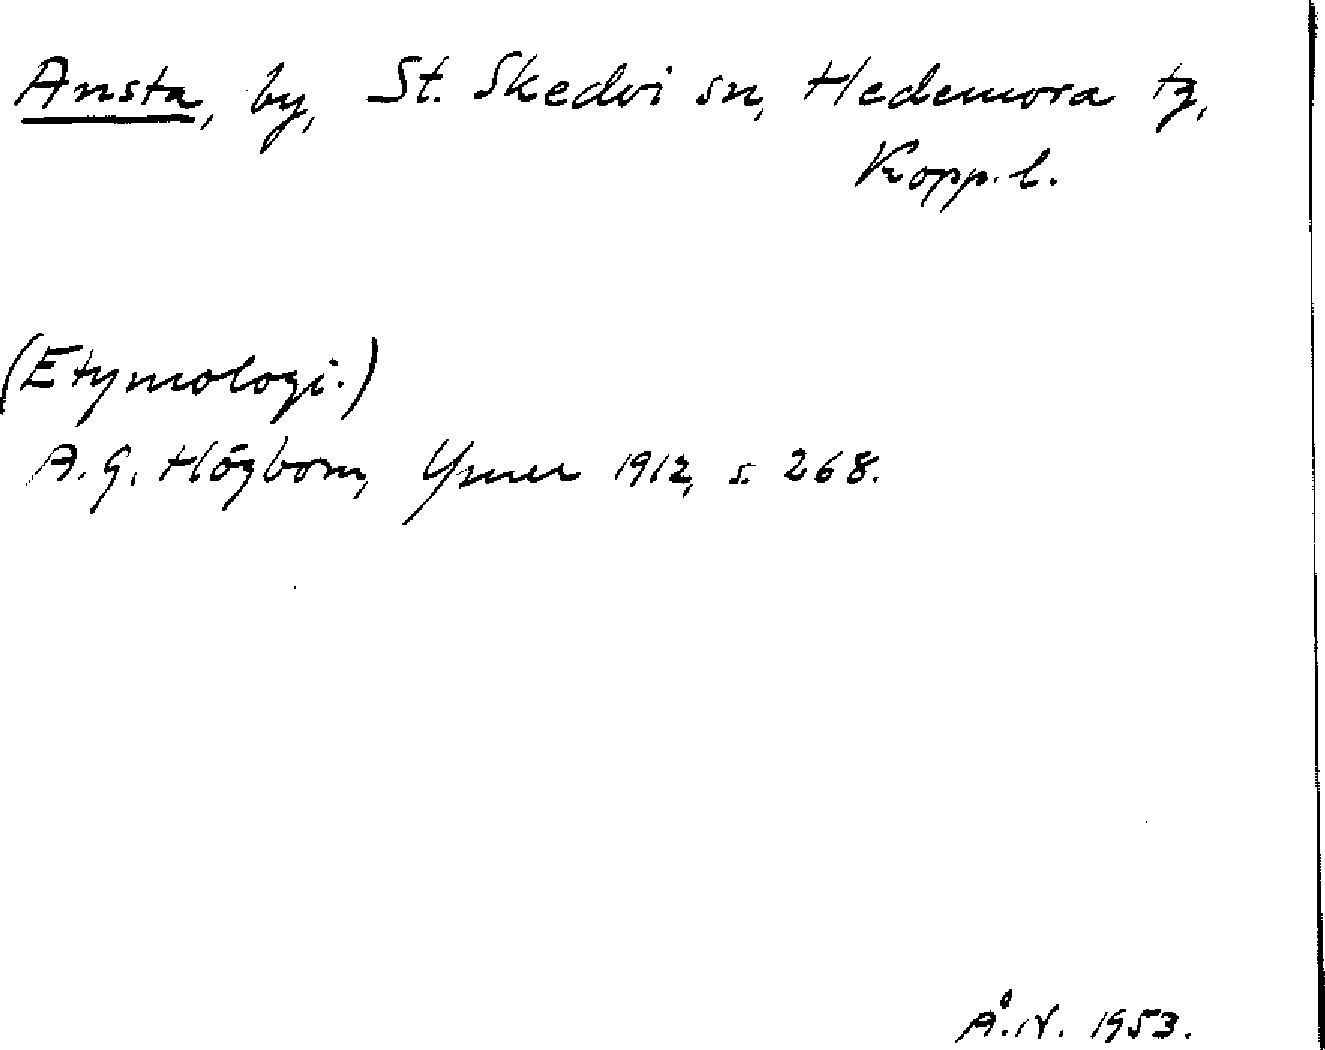 Ansta, by, St. Skedvi sn, Hedemora tg,
Kopp. l.
(Etymologi.)
A. G. Högbom, Ymer 1912, s. 268.
Å. N. 1953.